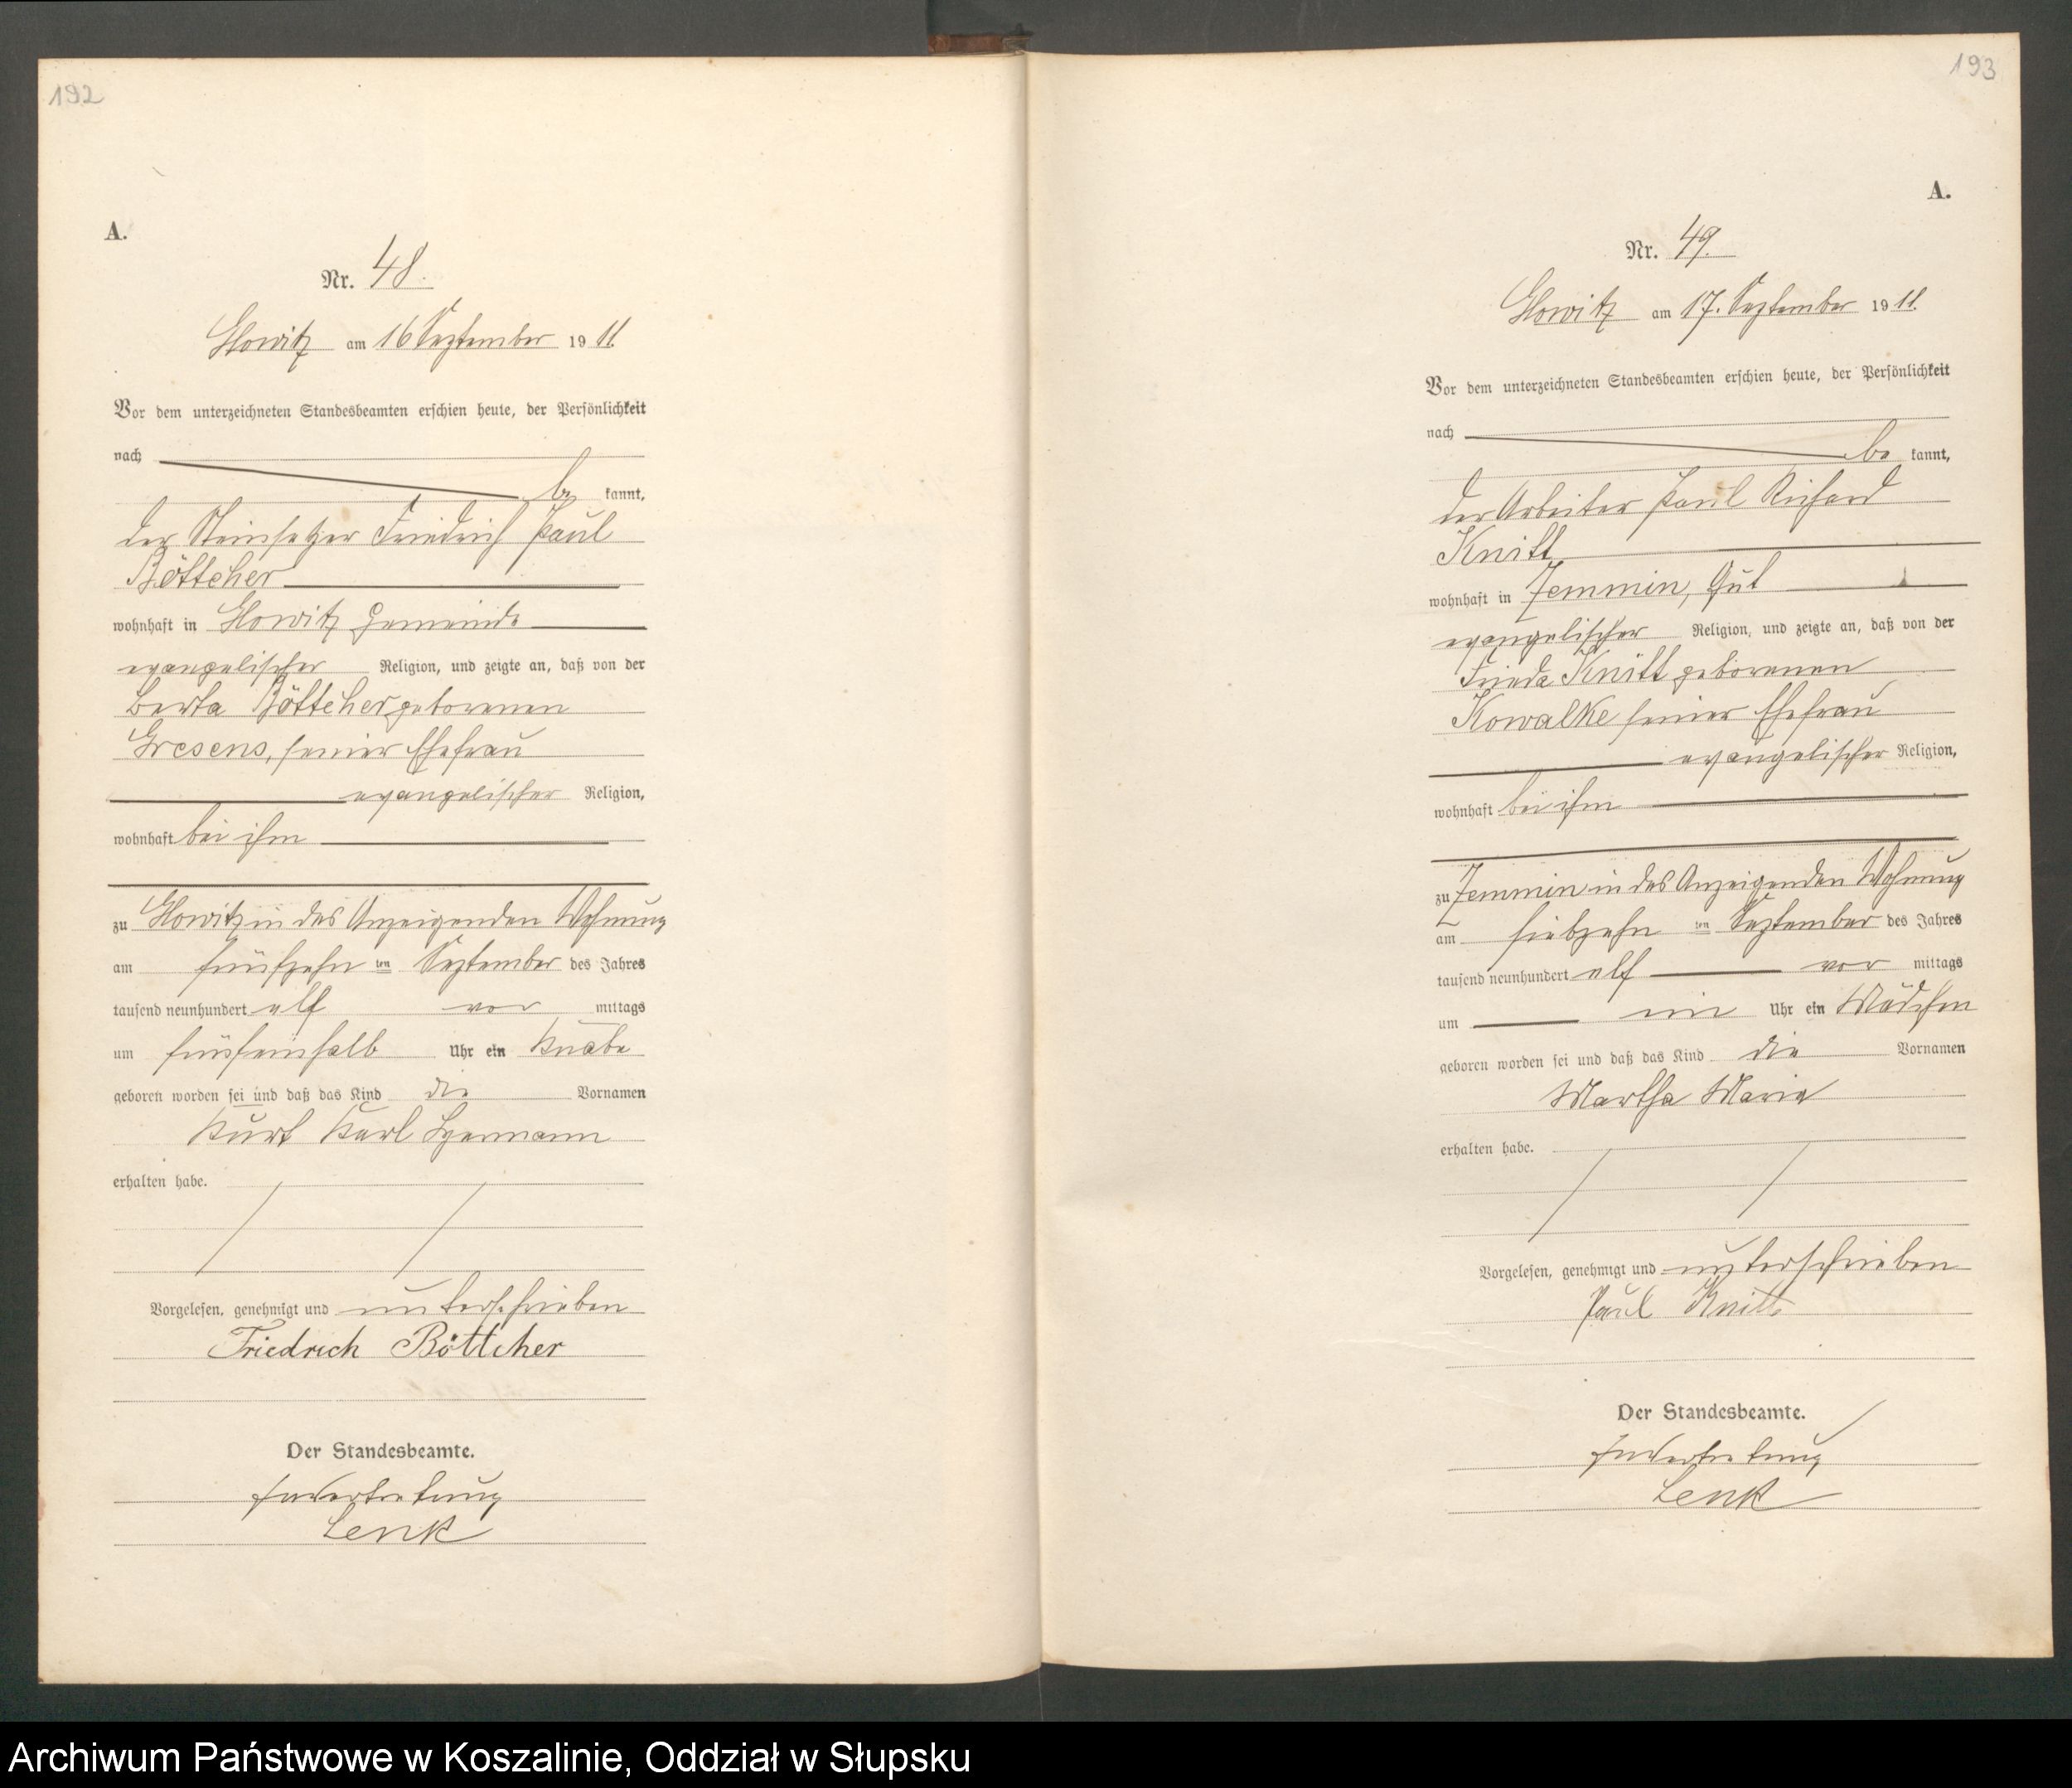 192
A.
Nr. 48.
Glowitz am 16 September 1911.
Vor dem unterzeichneten Standesbeamten erschien heute, der Persönlichkeit
nach
be kannt,
der Steinsetzer Friedrich Paul
Böttcher
wohnhaft in Glowitz Gemeinde
evangelischer Religion, und zeigte an, daß von der
Berta Böttcher geborenen
Gresens, seiner Ehefrau
evangelischer Religion,
wohnhaft bei ihm
zu Glowitz in des Anzeigenden Wohnung
am fünfzehn ten September des Jahres
tausend neunhundert elf vor mittags
um fünfeinhalb Uhr ein Knabe
geboren worden sei und daß das Kind die Vornamen
Kurt Karl Hermann
erhalten habe.
Vorgelesen, genehmigt und unterschrieben
Friedrich Böttcher
Der Standesbeamte.
In Vertretung
Lenk
193
A.
Nr. 49.
Glowitz am 17. September 1911.
Vor dem unterzeichneten Standesbeamten erschien heute, der Persönlichkeit
nach
be kannt,
der Arbeiter Paul Richard
Knitt
wohnhaft in Zemmin, Gut
evangelischer Religion, und zeigte an, daß von der
Frieda Knitt geborenen
Kowalke seiner Ehefrau
evangelischer Religion,
wohnhaft bei ihm
zu Zemmin in des Anzeigenden Wohnung
am siebzehn ten September des Jahres
tausend neunhundert elf vor mittags
um ein Uhr ein Mädchen
geboren worden sei und daß das Kind die Vornamen
Martha Marie
erhalten habe.
Vorgelesen, genehmigt und unterschrieben
Paul Knitt
Der Standesbeamte.
In Vertretung
Lenk
Archiwum Państwowe w Koszalinie, Oddział w Słupsku